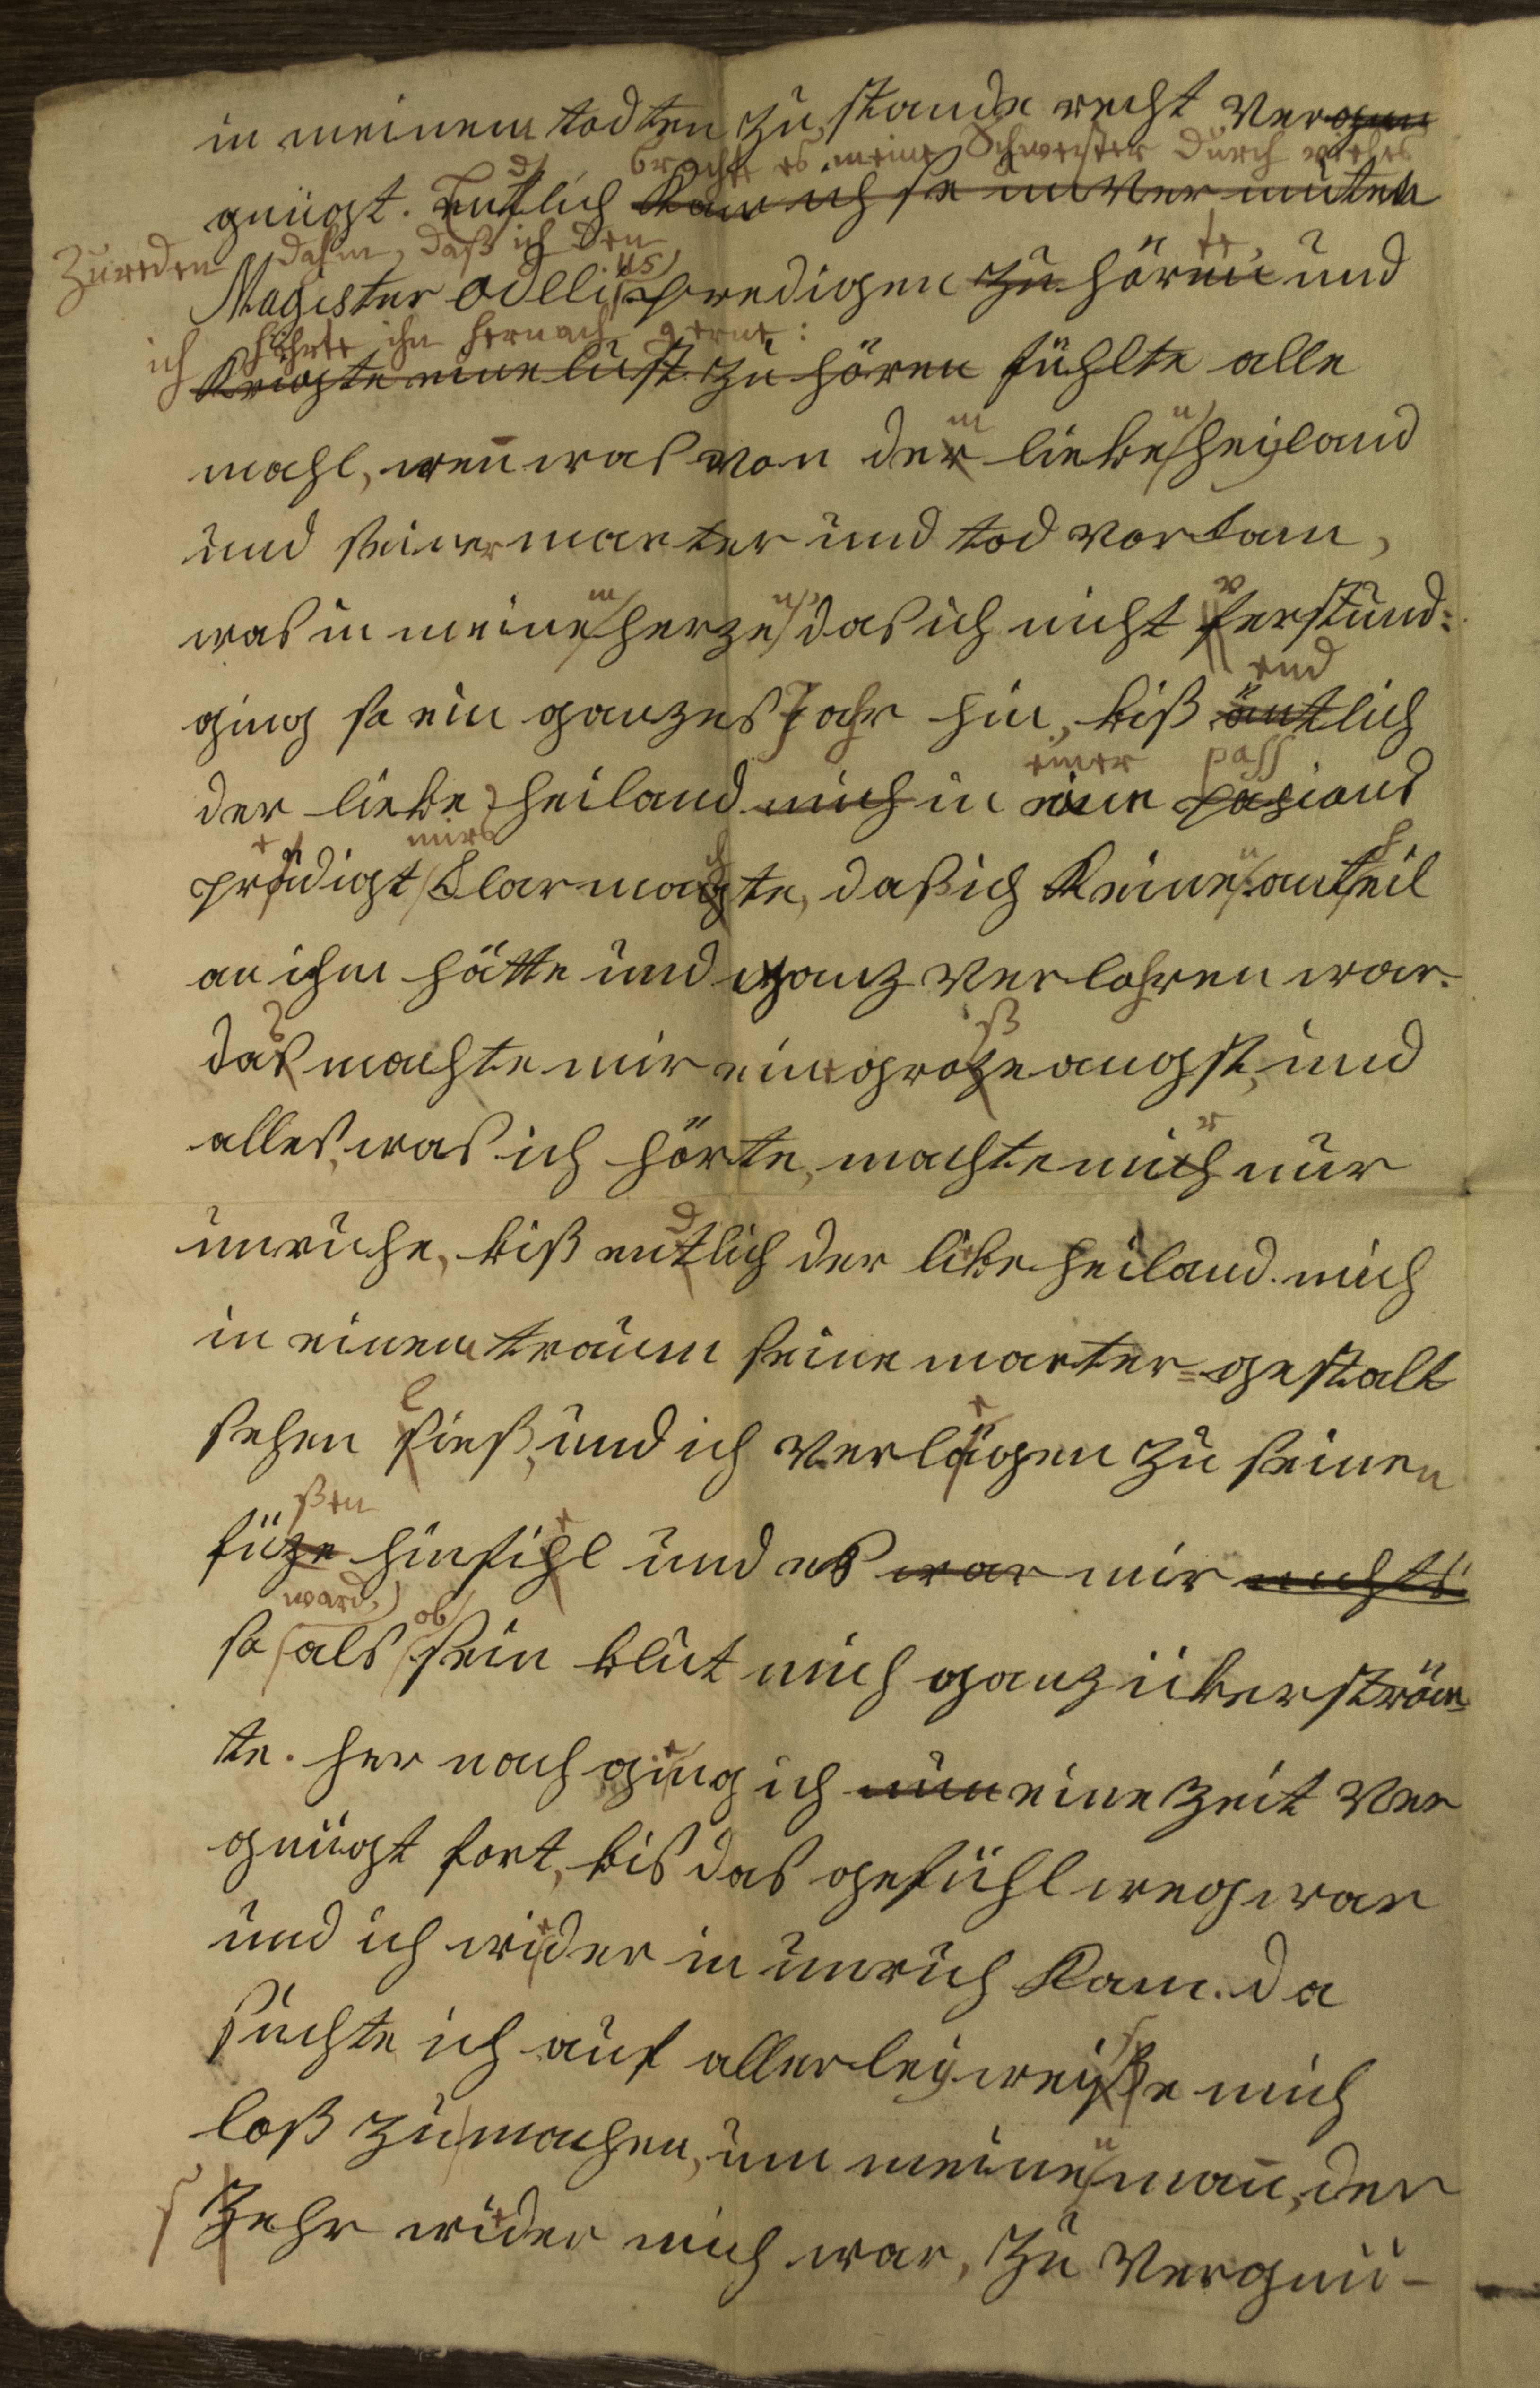 in meinem todten zu stande recht vergnu
brachte es meine Schwester durch vieles
gnügt. Entlich kam ich so unver muten
zureden dahin, daß ich den
Magister odelius predigen zu hören te, und
ich hörte ihn hernach gerne:
krigte eine lust zu hören fühlte alle
mahl, wen̄ was von der m liebe n heyland
und seiner marter und tod vorkam,
was in meine m herze n, das ich nicht v ferstund:
end
ging so ein ganzes Jahr hin, biß äntlich
einer pass
der liebe heiland mich in eine pasions
mirs
prädigt klar magte, daß ich keine n anteil
an ihm hätte und ganz verlohren war.
das machte mir eine große angst, und
alles, was ich hörte, machte mich r nur
unruhe, biß entlich der libe heiland mich
in einem traum seine marter-gestalt
sehen ließ, und ich verlägen zu seinen
ßen
füze hinfihl und es war mir nichts
ward, ob
so als sein blut mich ganz überström-
te. her nach ging ich nun eine zeit ver
gnügt fort, bis das gefühl weg war
und ich wider in unruh kam. da
suchte ich auf allerley weyße mich
loß zu machen, um meine n man̄, der
s Zehr wider mich war, zu vergnü-